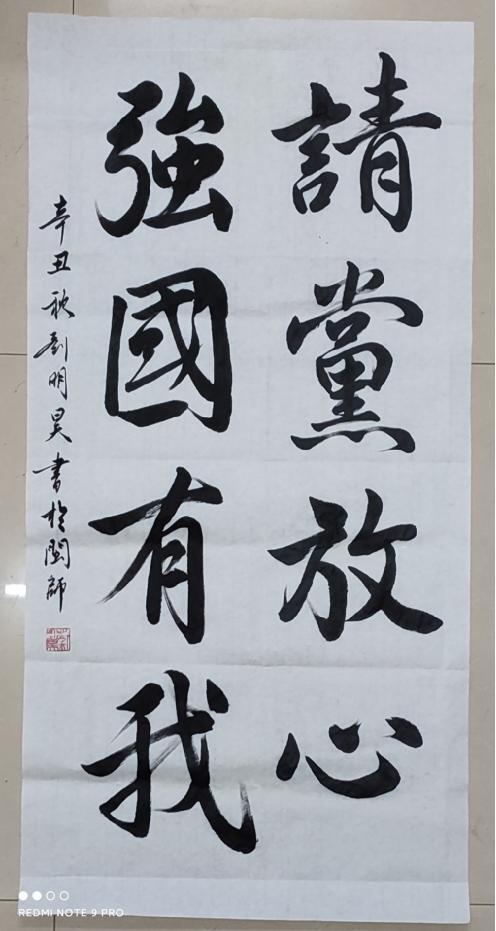 請黨放心
強國有我
辛丑秋刘明昊書於閩師
REDMI NOTE 9 PRO